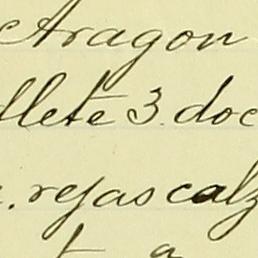 Aragon
llete 3. doc
. rejas calz